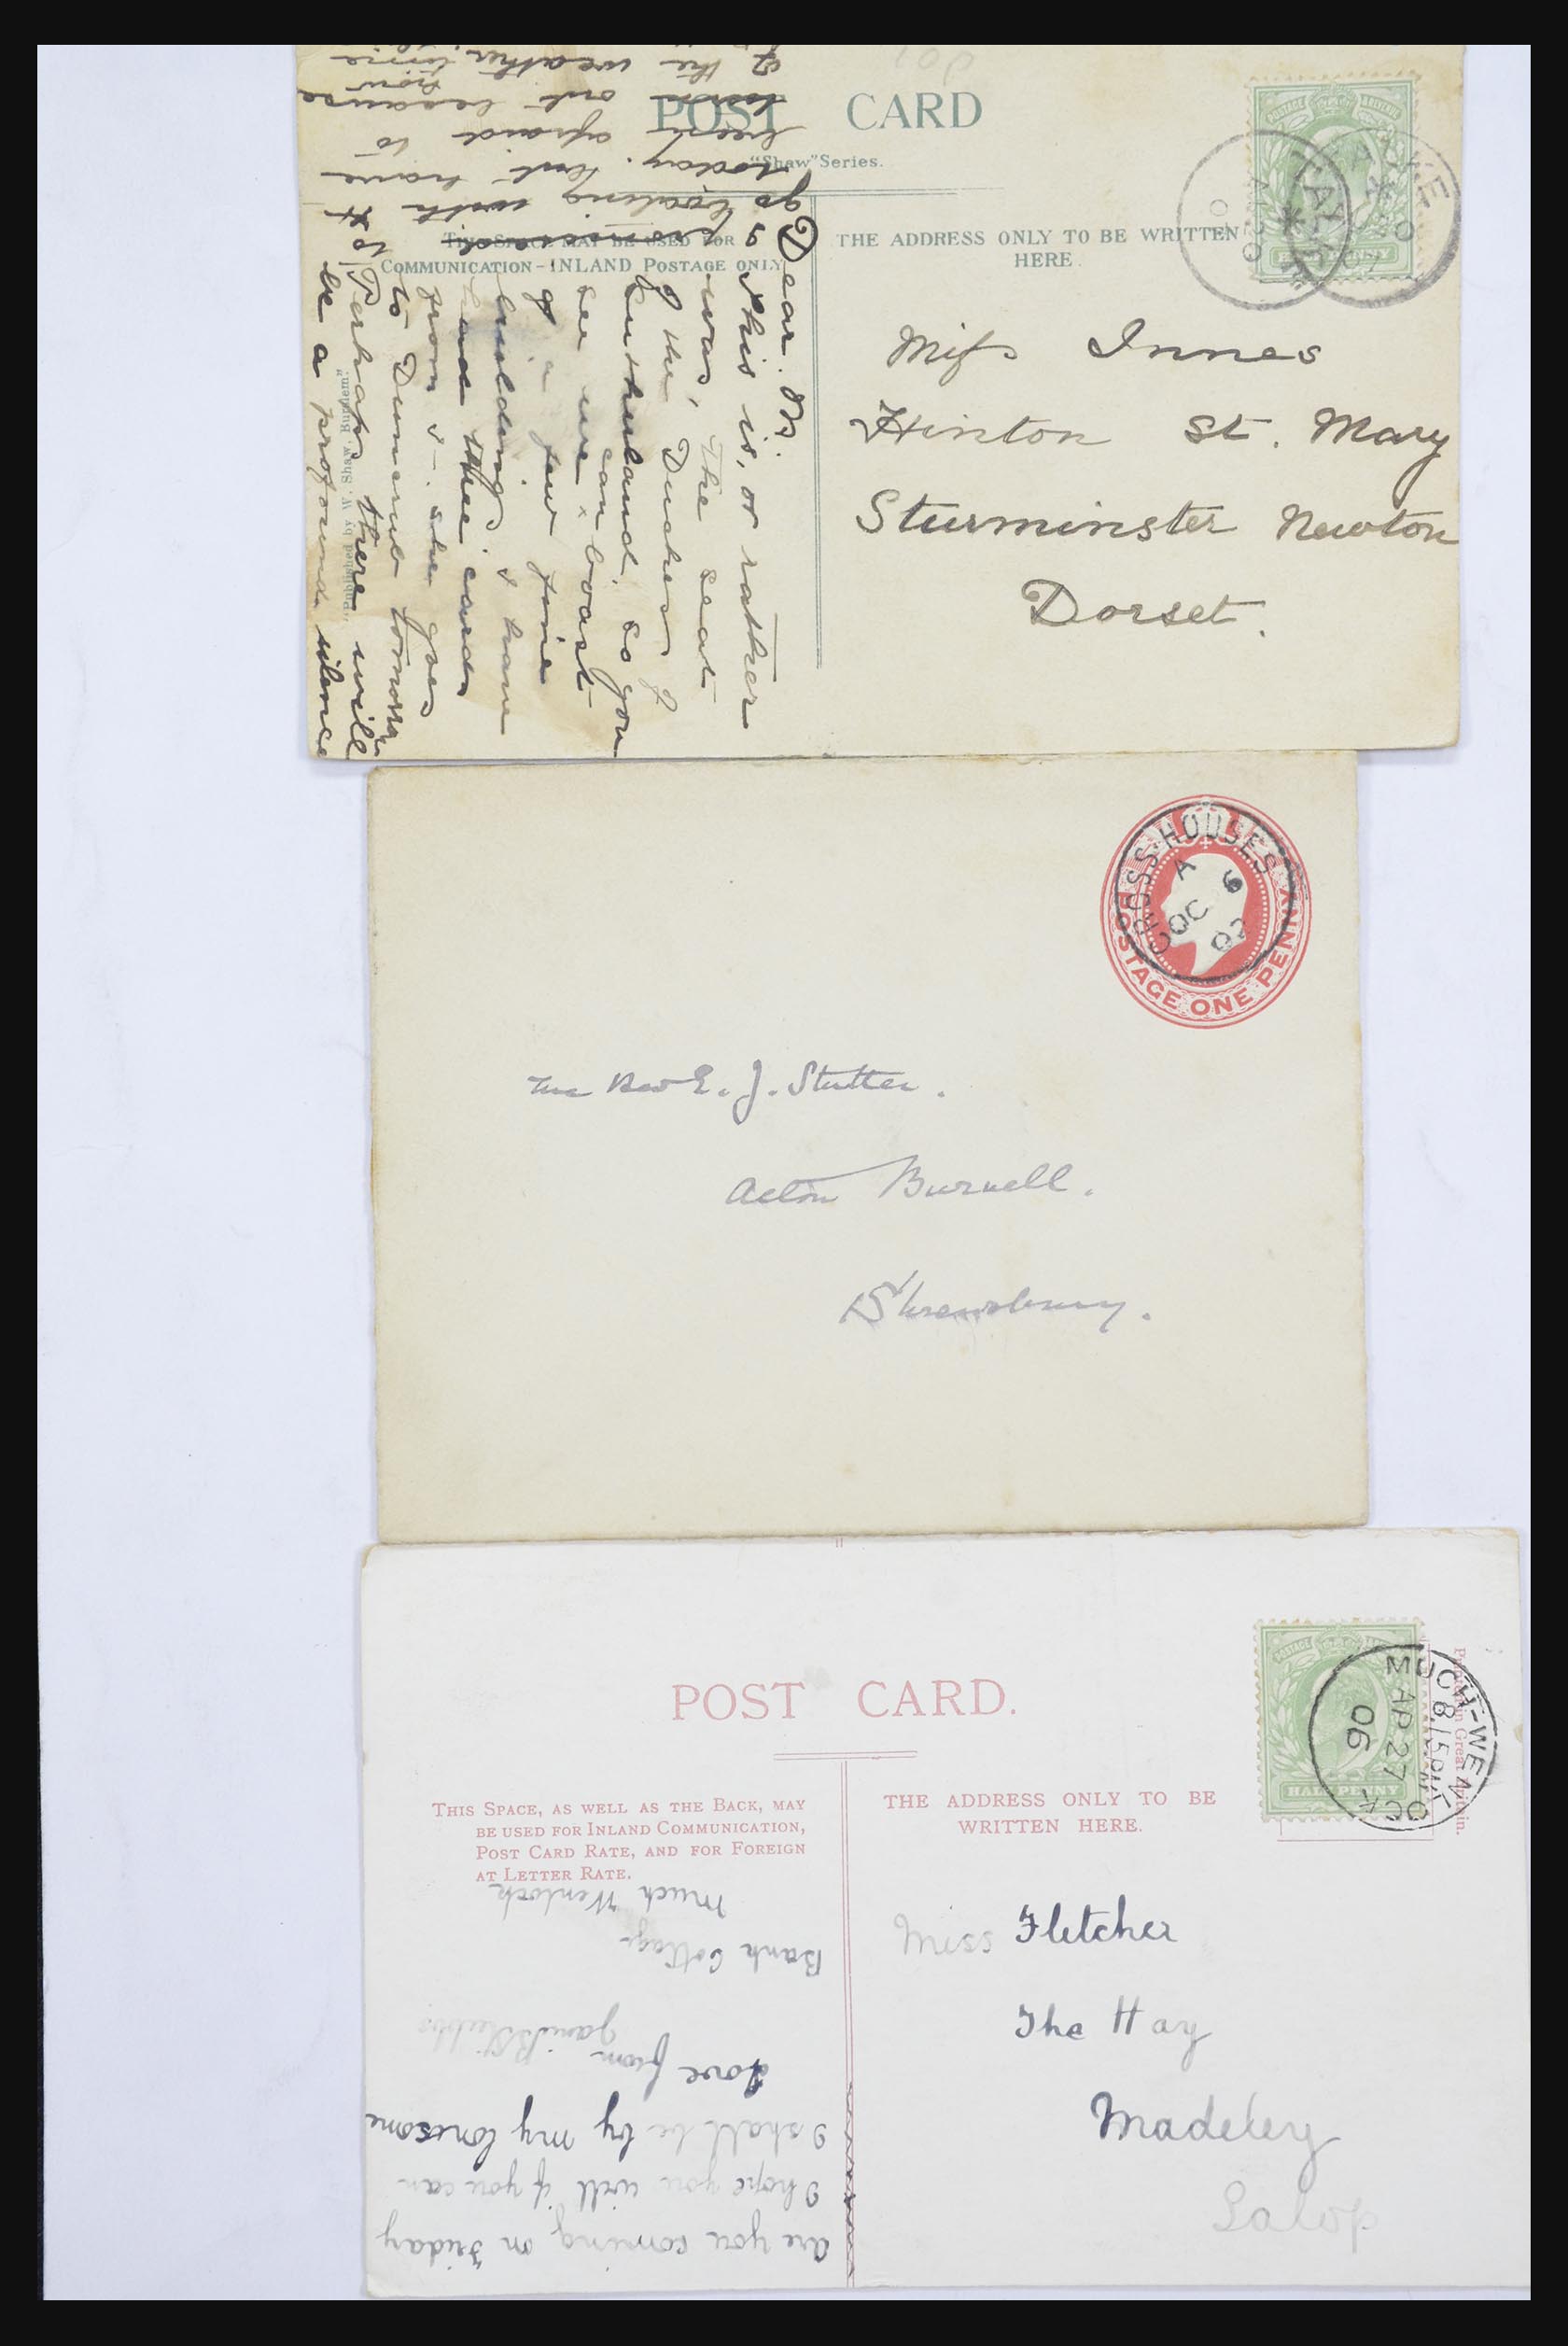 POST CARD
"Shaw" Series.
THIS SPACE MAY BE USED FOR
COMMUNICATION-INLAND POSTAGE ONLY
THE ADDRESS ONLY TO BE WRITTEN
HERE.
Miss Innes
Hinton St. Mary
Sturminster Newton
Dorset.
Dear M.
This is, or rather
was, the seat
of the Duchess of
Sutherland, so you
see we can boast
of a few fine
buildings & have
had these cards
from she goes
to Dunrobin tomorrow
Perhaps there will
be a profound silence
I promised to
go boating with H
today. but have
been afraid to
out because now
of the weather
Published by W. Shaw, Burslem.
AU 20
CROSS-HOUSES
A
OC 6
02
POSTAGE ONE PENNY
The Rev E. J. Stutter.
Acton Burnell.
Shrewsbury.
POST CARD.
THIS SPACE, AS WELL AS THE BACK, MAY
BE USED FOR INLAND COMMUNICATION,
POST CARD RATE, AND FOR FOREIGN
AT LETTER RATE.
THE ADDRESS ONLY TO BE
WRITTEN HERE.
Printed in Great Britain.
POSTAGE
HALF PENNY
MUCH-WENLOCK
8.15PM
AP 27
06
Miss Fletcher
The Hay
Madeley
Salop
Are you coming on Friday
I hope you will if you can
I shall be by my lonesome
Love from
Bank Cottage
Much Wenlock